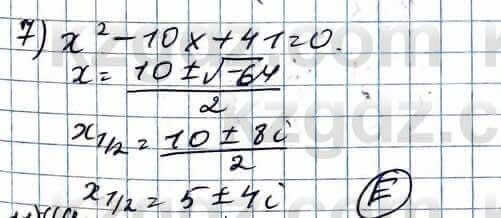 7) x² - 10x + 41 = 0.
x = (10 ± √-64)/2
x₁/₂ = (10 ± 8i)/2
x₁/₂ = 5 ± 4i (E)